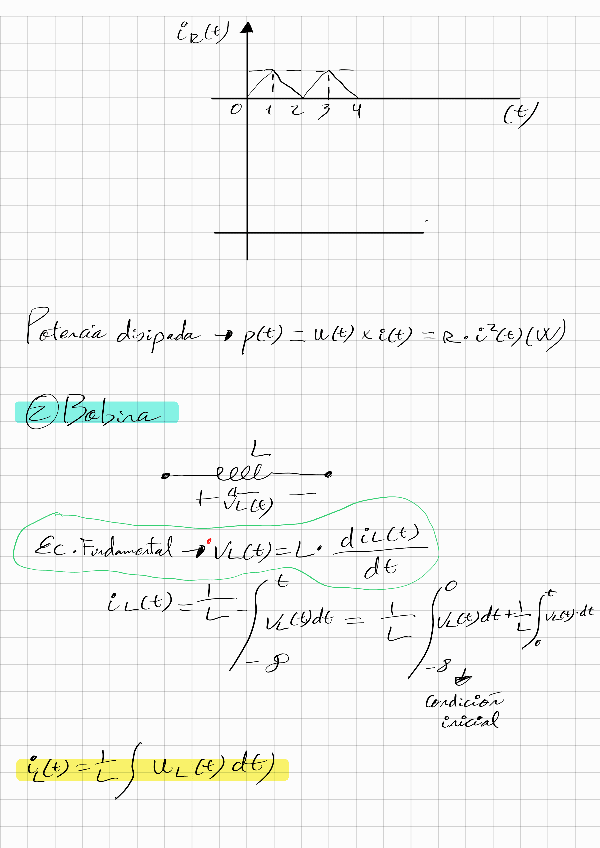 i_R(t)
0 1 2 3 4 (t)
Potencia disipada → p(t) = u(t) × i(t) = R · i²(t) (W)
② Bobina
L
+ V_L(t) −
Ec. Fundamental → V_L(t) = L · di_L(t)/dt
i_L(t) = 1/L ∫_{-∞}^{t} V_L(t)dt = 1/L ∫_{-∞}^{0} V_L(t)dt + 1/L ∫_{0}^{t} V_L(t)·dt
Condición
inicial
i_L(t) = 1/L ∫ u_L(t) dt)